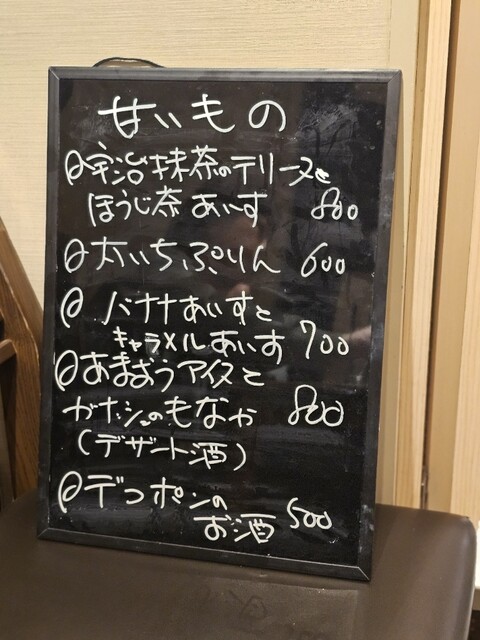 甘いもの
宇治抹茶のテリーヌと
ほうじ茶あいす 800
太いちぷりん 600
バナナあいすと
キャラメルあいす 700
あまおうアイスと
ガナッシュのもなか 800
(デザート酒)
デコポンの
お酒 500